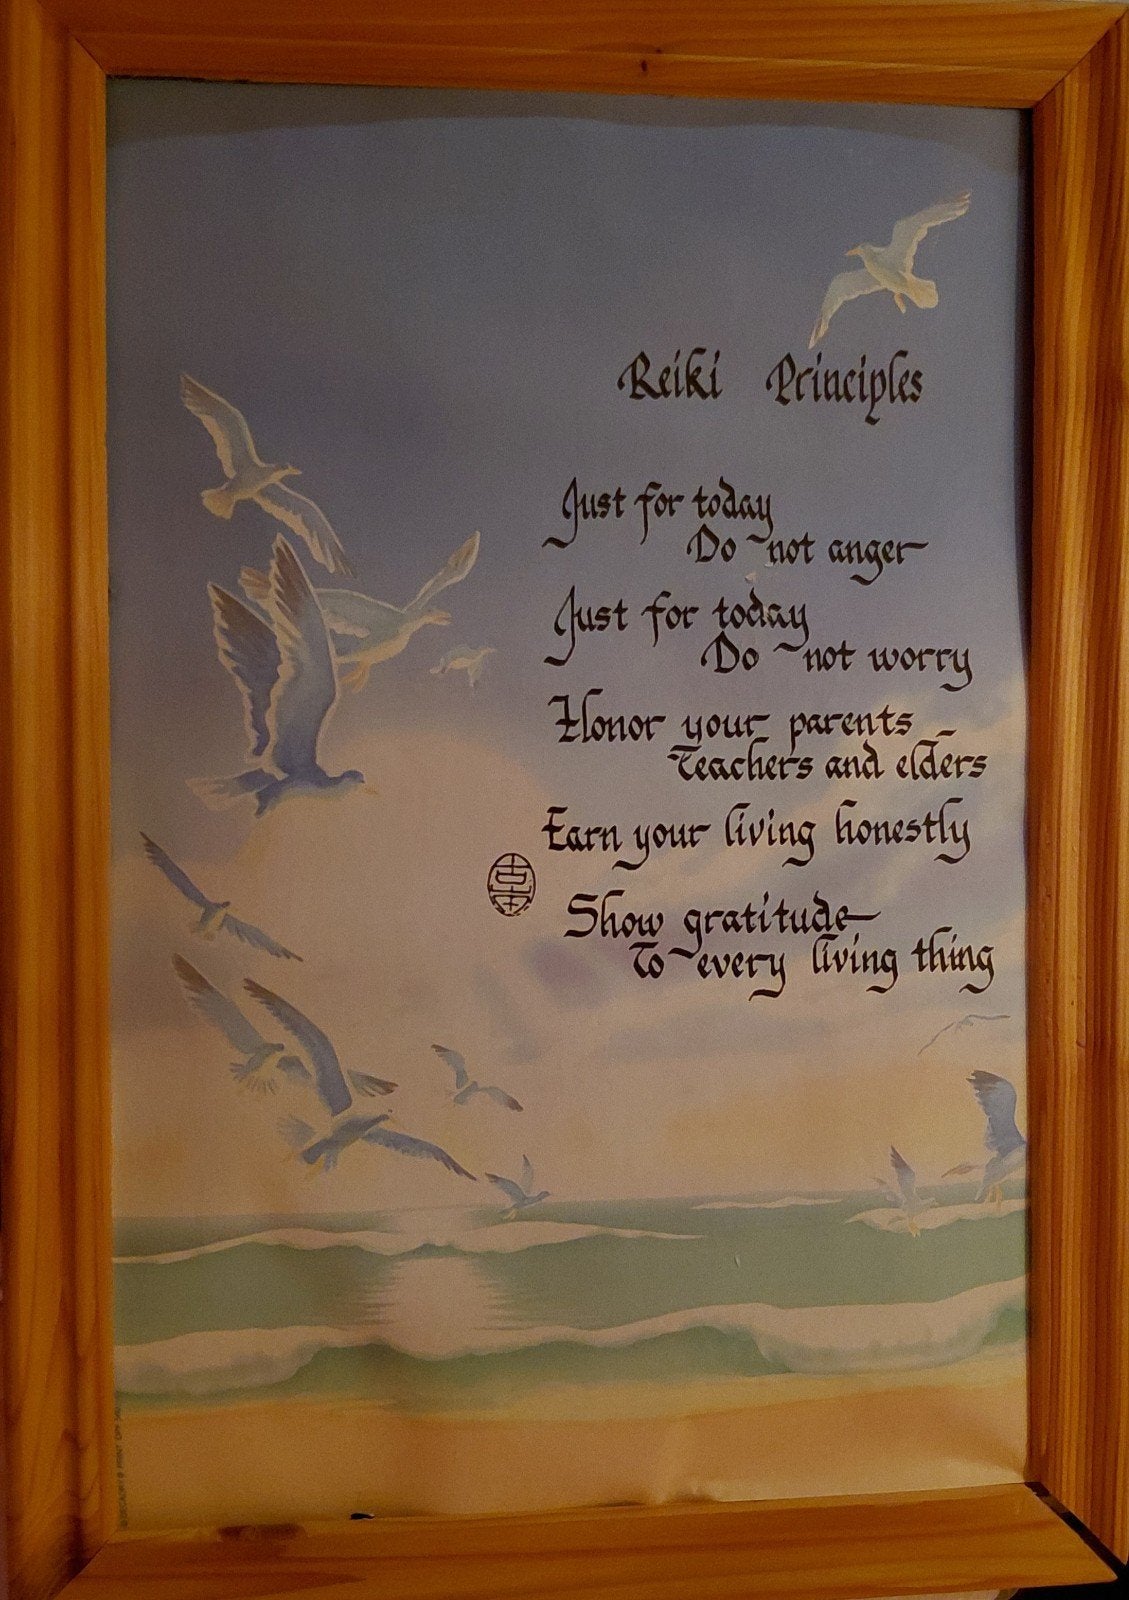 Reiki Principles
Just for today
Do not anger
Just for today
Do not worry
Honor your parents
Teachers and elders
Earn your living honestly
Show gratitude
To every living thing